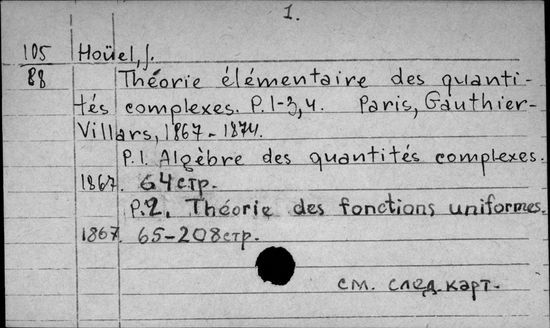 1.
105 Hoüel, J.
88 Théorie élémentaire des quanti-
tés complexes. P. 1-3, 4. Paris, Gauthier-
Villars, 1867-1874.
P. 1. Algèbre des quantités complexes.
1867. 64 стр.
P. 2. Théorie des fonctions uniformes.
1867. 65-208 стр.
см. след. карт.